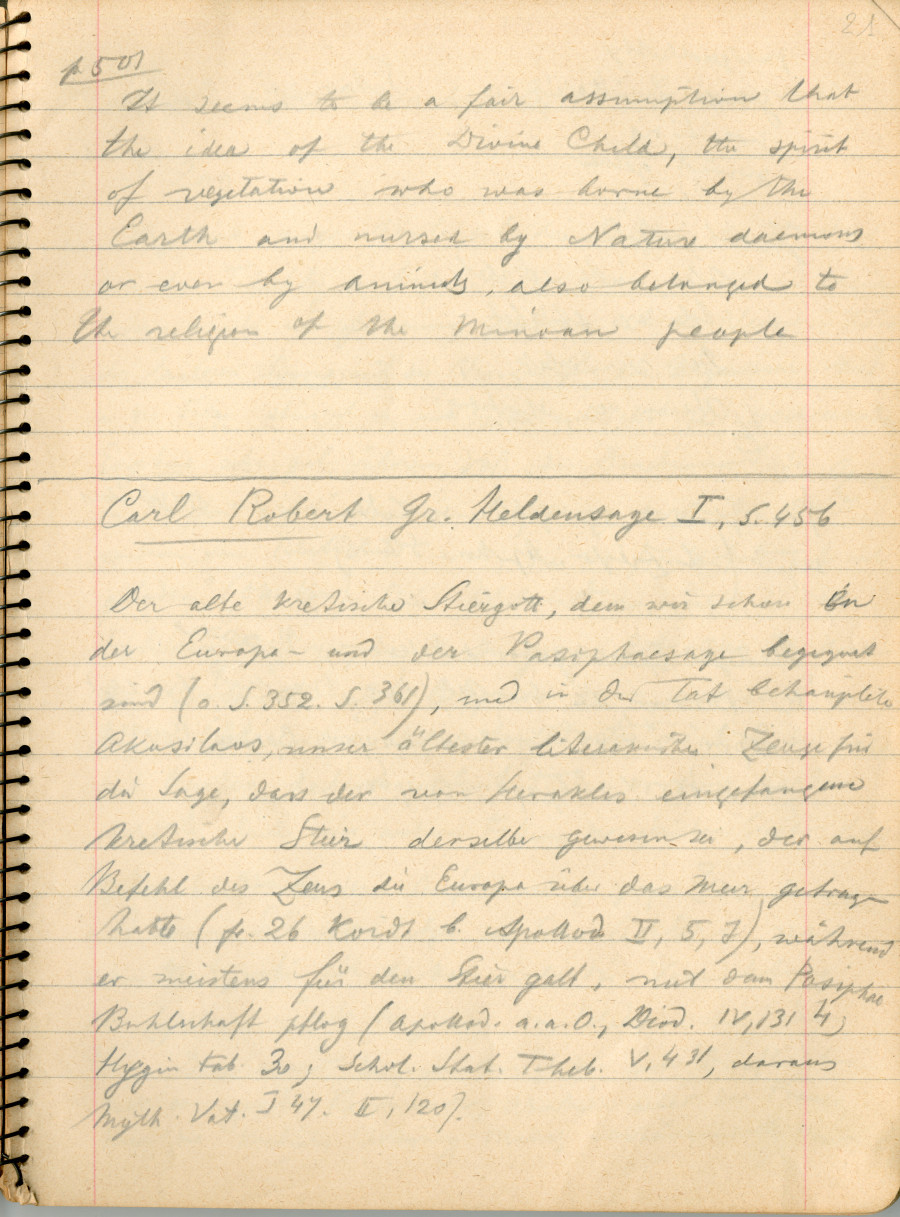 21
p 501
It seems to be a fair assumption that
the idea of the Divine Child, the spirit
of vegetation who was borne by the
Earth and nursed by Nature daemons
or even by animals, also belonged to
the religion of the Minoan people
Carl Robert Gr. Heldensage I, S. 456
Der alte kretische Stiergott, dem wir schon in
der Europa- und der Pasiphaesage begegnet
sind (o. S. 352. S. 361), und in der Tat behauptete
Akusilaos, unser ältester literarischer Zeuge für
die Sage, dass der von Herakles eingefangene
kretische Stier derselbe gewesen sei, der auf
Befehl des Zeus die Europa über das Meer getragen
hatte (fr. 26 Kordt b. Apollod II, 5, 7), während
er meistens für den Stier galt, mit dem Pasiphae
Buhlschaft pflog (Apollod. a.a.O., Diod. IV, 13, 4;
Hygin fab. 30; Schol. Stat. Theb. V, 431, daraus
Myth. Vat. I 47. II, 120).